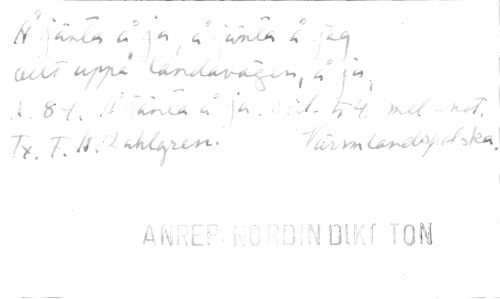 Å jänta å ja, å jänta å jag
allt uppå landavägen, å ja,
N. 84. Å jänta å ja. Sid. 54. mel-not.
Tx. F. A. Dahlgren. Värmlandspolska.
ANREP-NORDIN DIKT TON